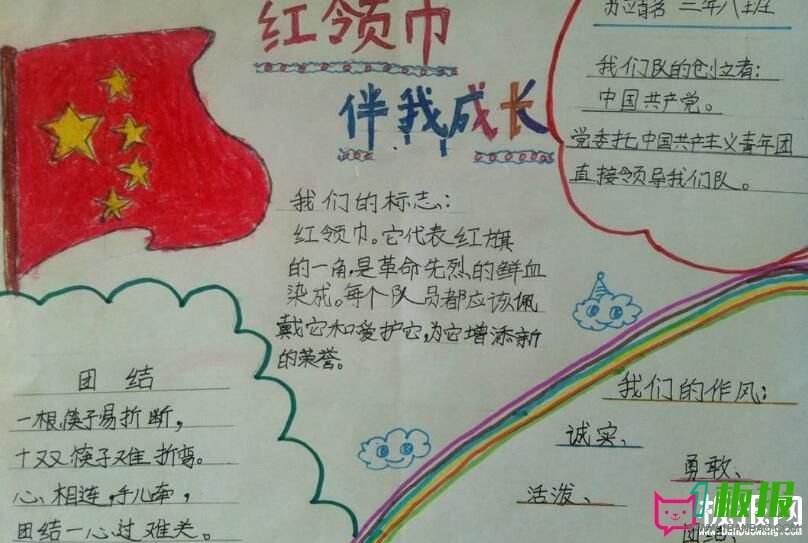 红领巾
伴我成长
三年八班
我们队的创立者：
中国共产党。
党委托中国共产主义青年团
直接领导我们队。
我们的标志：
红领巾。它代表红旗
的一角，是革命先烈的鲜血
染成。每个队员都应该佩
戴它和爱护它，为它增添新
的荣誉。
团结
一根筷子易折断，
十双筷子难折弯。
心相连，手儿牵，
团结一心过难关。
我们的作风：
诚实、
勇敢、
活泼、
团结
板报